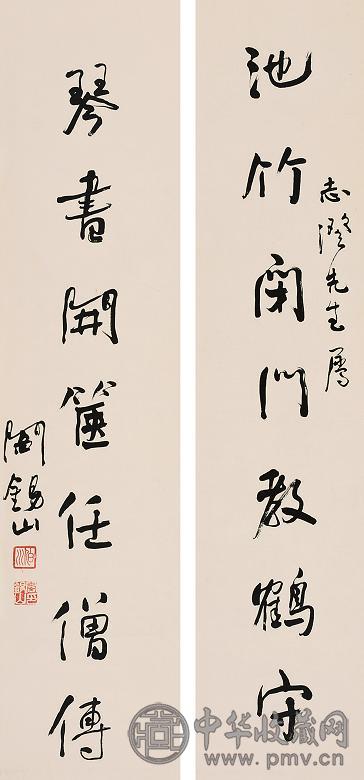 池竹閉門教鶴守
志澄先生屬
琴書開篋任僧傳
閻錫山
中华收藏网
www.pmv.cn